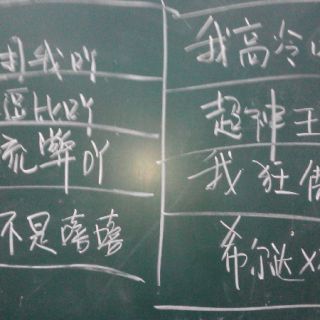 我吖
逗比吖
流弊吖
不是嘻嘻
我高冷
超神王
我狂傲
希尔达x